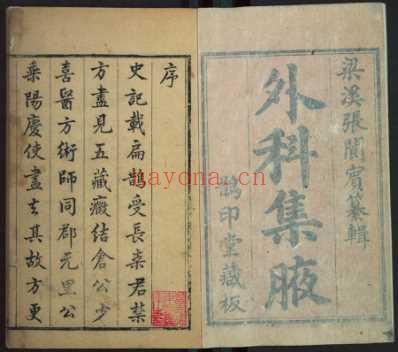 梁溪張閬賓纂輯
外科集腋
鴻印堂藏板
序
史記載扁鵲受長桑君禁
方盡見五藏癥結倉公少
喜醫方術師同郡元里公
乘陽慶使盡去其故方更
hayona.cn